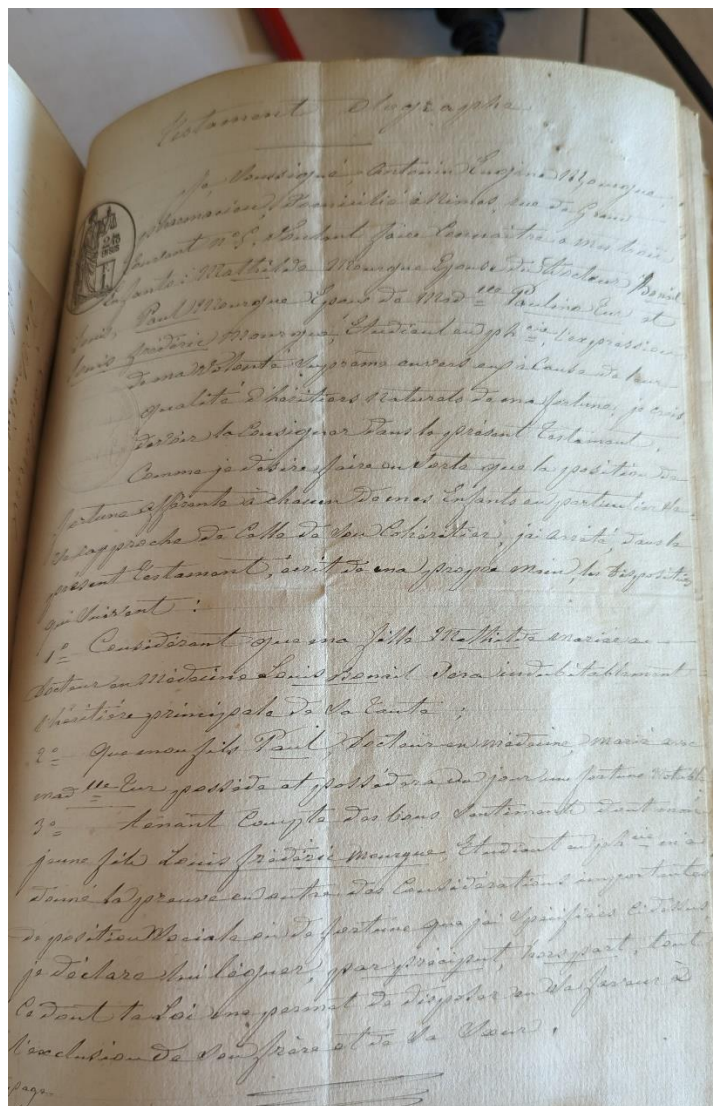 Testament olographe
Je, soussigné, Antonin Eugène Mourgue,
pharmacien, domicilié à Nîmes, rue du Grand
Couvent n° 5, voulant faire connaître à mes trois
Enfants : Mathilde Mourgue Epouse du Docteur Bonail
Louis, Paul Mourgue Epoux de Mad lle Pauline Tur et
Louis frédéric Mourgue, Etudiant en ph cie, l'expression
de ma volonté suprême envers eux à cause de leur
qualité d'héritiers naturels de ma fortune, je crois
devoir la Consigner dans le présent testament.
Comme je désire faire en sorte que la position de
fortune afférente à chacun de mes Enfants en particulier se
rapproche de Celle de son Cohéritier, j'ai arrêté, dans le
présent testament, écrit de ma propre main, les dispositions
qui suivent :
1° Considérant que ma fille Mathilde mariée au
docteur en médecine Louis Bonail sera indubitablement
l'héritière principale de sa tante ;
2° Que mon fils Paul, docteur en médecine, marié avec
mad lle Tur possède et possèdera un jour une fortune notable
3° tenant Compte des bons sentiments dont mon
jeune fils Louis frédéric mourgue, Etudiant en ph cie m'a
donné la preuve en outre des Considérations importantes
de position Sociale ou de fortune que j'ai spécifiées ci dessus
je déclare lui léguer, par préciput, hors part, tout
Ce dont la Loi me permet de disposer en sa faveur à
l'exclusion de son frère et de sa Soeur.
page.